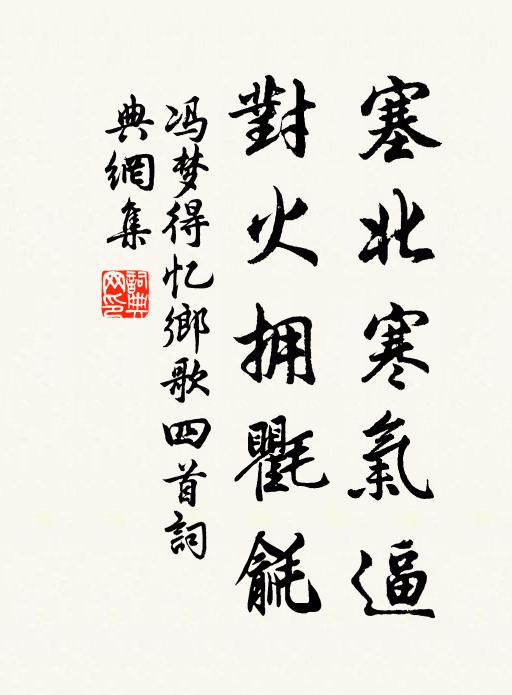 塞北寒氣逼
對火拥氍毹
冯梦得忆鄉歌四首詞
典網集
詞典
网印